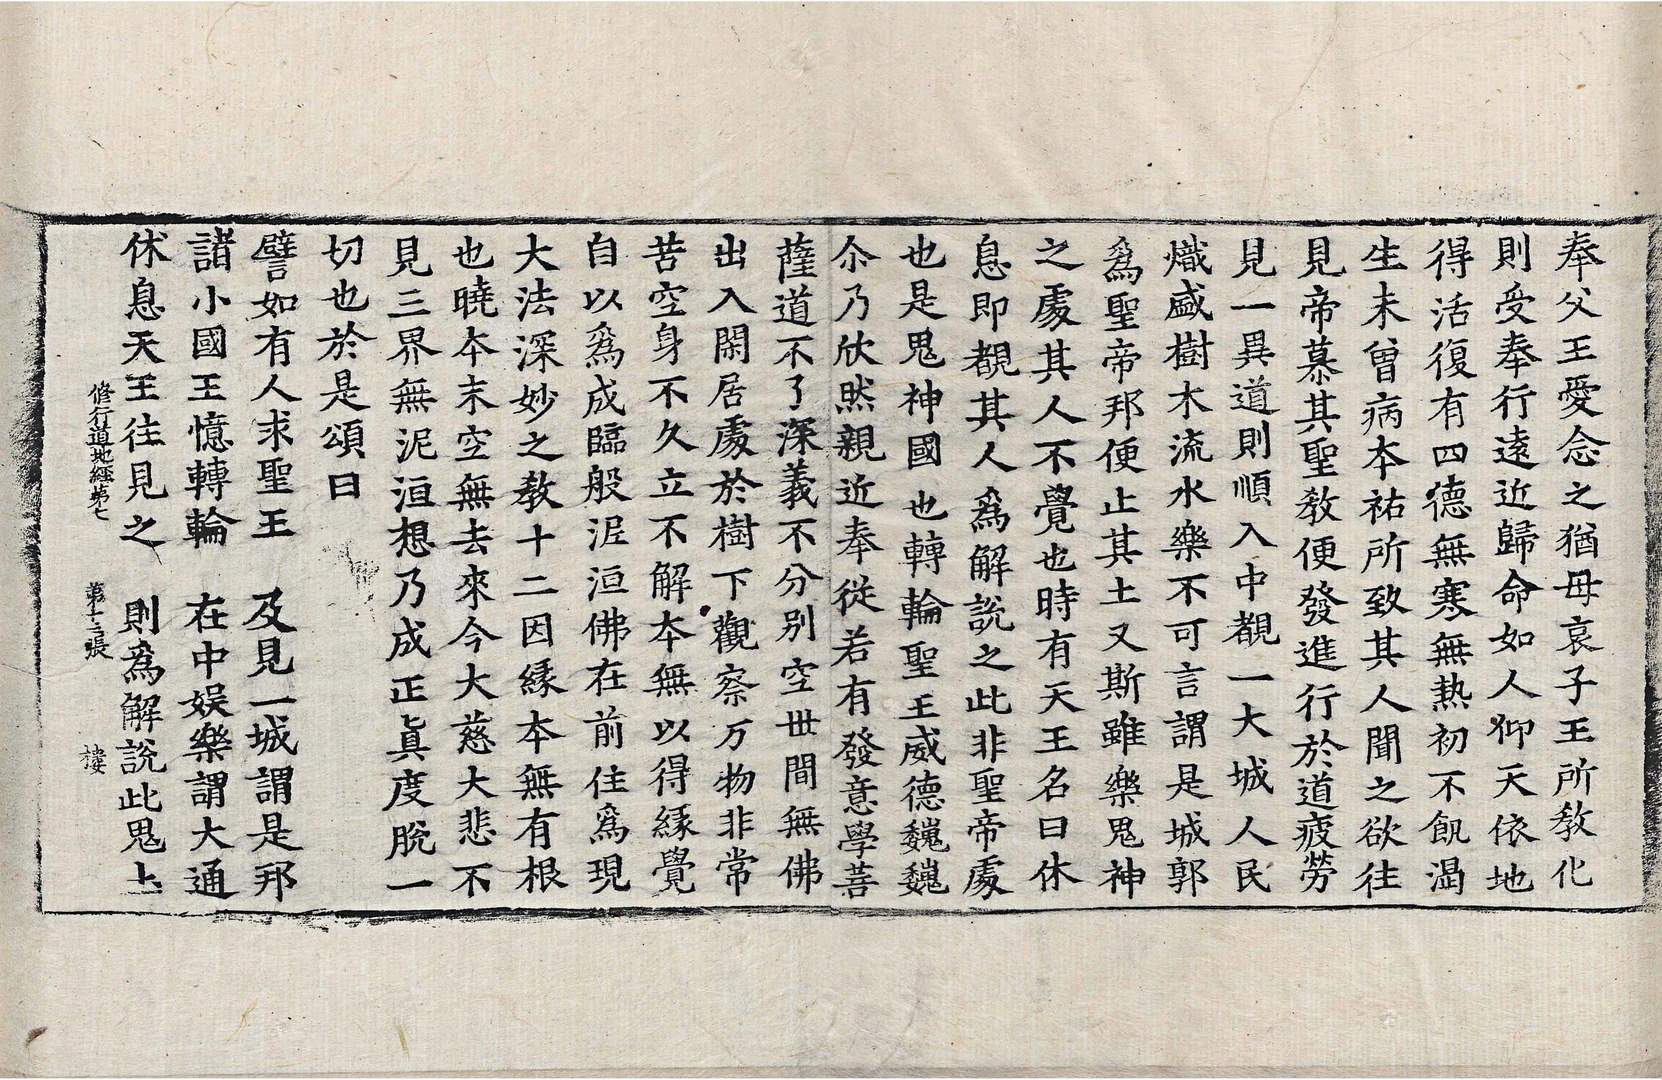 奉父王愛念之猶母哀子王所教化
則受奉行遠近歸命如人仰天依地
得活復有四德無寒無熱初不飢渴
生未曾病本祐所致其人聞之欲往
見帝慕其聖教便發進行於道疲勞
見一異道則順入中覩一大城人民
熾盛樹木流水樂不可言謂是城郭
爲聖帝邦便止其土又斯雖樂鬼神
之處其人不覺也時有天王名曰休
息即覩其人爲解說之此非聖帝處
也是鬼神國也轉輪聖王威德巍巍
尒乃欣然親近奉從若有發意學菩
薩道不了深義不分別空世間無佛
出入閑居處於樹下觀察万物非常
苦空身不久立不解本無以得緣覺
自以爲成臨般泥洹佛在前住爲現
大法深妙之教十二因緣本無有根
也曉本末空無去來今大慈大悲不
見三界無泥洹想乃成正眞度脫一
切也於是頌曰
譬如有人求聖王 及見一城謂是邦
諸小國王憶轉輪 在中娛樂謂大通
休息天王往見之 則爲解說此鬼土
修行道地經第七 第十三張 樓